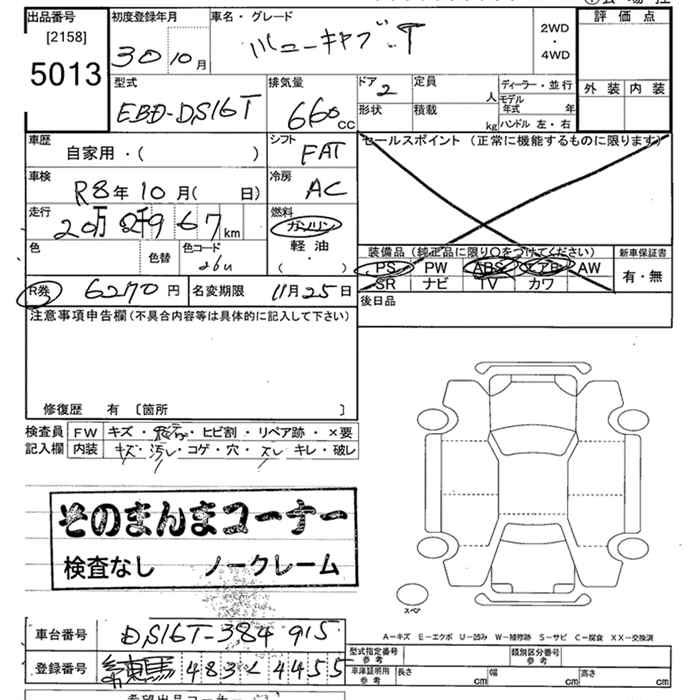 出品番号
[2158]
5013
初度登録年月
30 10月
車名・グレード
ミニキャブ T
2WD
・
4WD
評価点
外装 内装
型式
EBD-DS16T
排気量
660cc
ドア 2
定員 人
形状
積載 kg
ディーラー・並行
モデル年式 年
ハンドル 左・右
車歴
自家用・( )
シフト
FAT
セールスポイント (正常に機能するものに限ります)
車検
R8年10月( 日)
冷房
AC
走行
20万2千967km
燃料
ガソリン
軽油
・
( )
色
色替
色コード
26U
装備品(純正品に限り○をつけてください)
PS PW ABS エアB AW
SR ナビ TV カワ
新車保証書
有・無
R券 6270円
名変期限 11月25日
後日品
注意事項申告欄(不具合内容等は具体的に記入して下さい)
修復歴 有 〔箇所 〕
検査員記入欄
FW キズ・飛石・ヒビ割・リペア跡・×要
内装 キズ・汚レ・コゲ・穴・スレ・キレ・破レ
そのまんまコーナー
検査なし ノークレーム
スペア
A-キズ E-エクボ U-凹み W-補修跡 S-サビ C-腐食 XX-交換済
車台番号 DS16T-384915
登録番号 練馬 483 4455
型式指定番号 参考
類別区分番号 参考
車庫証明用 参考
長さ cm
幅 cm
高さ cm
希望出品コーナー